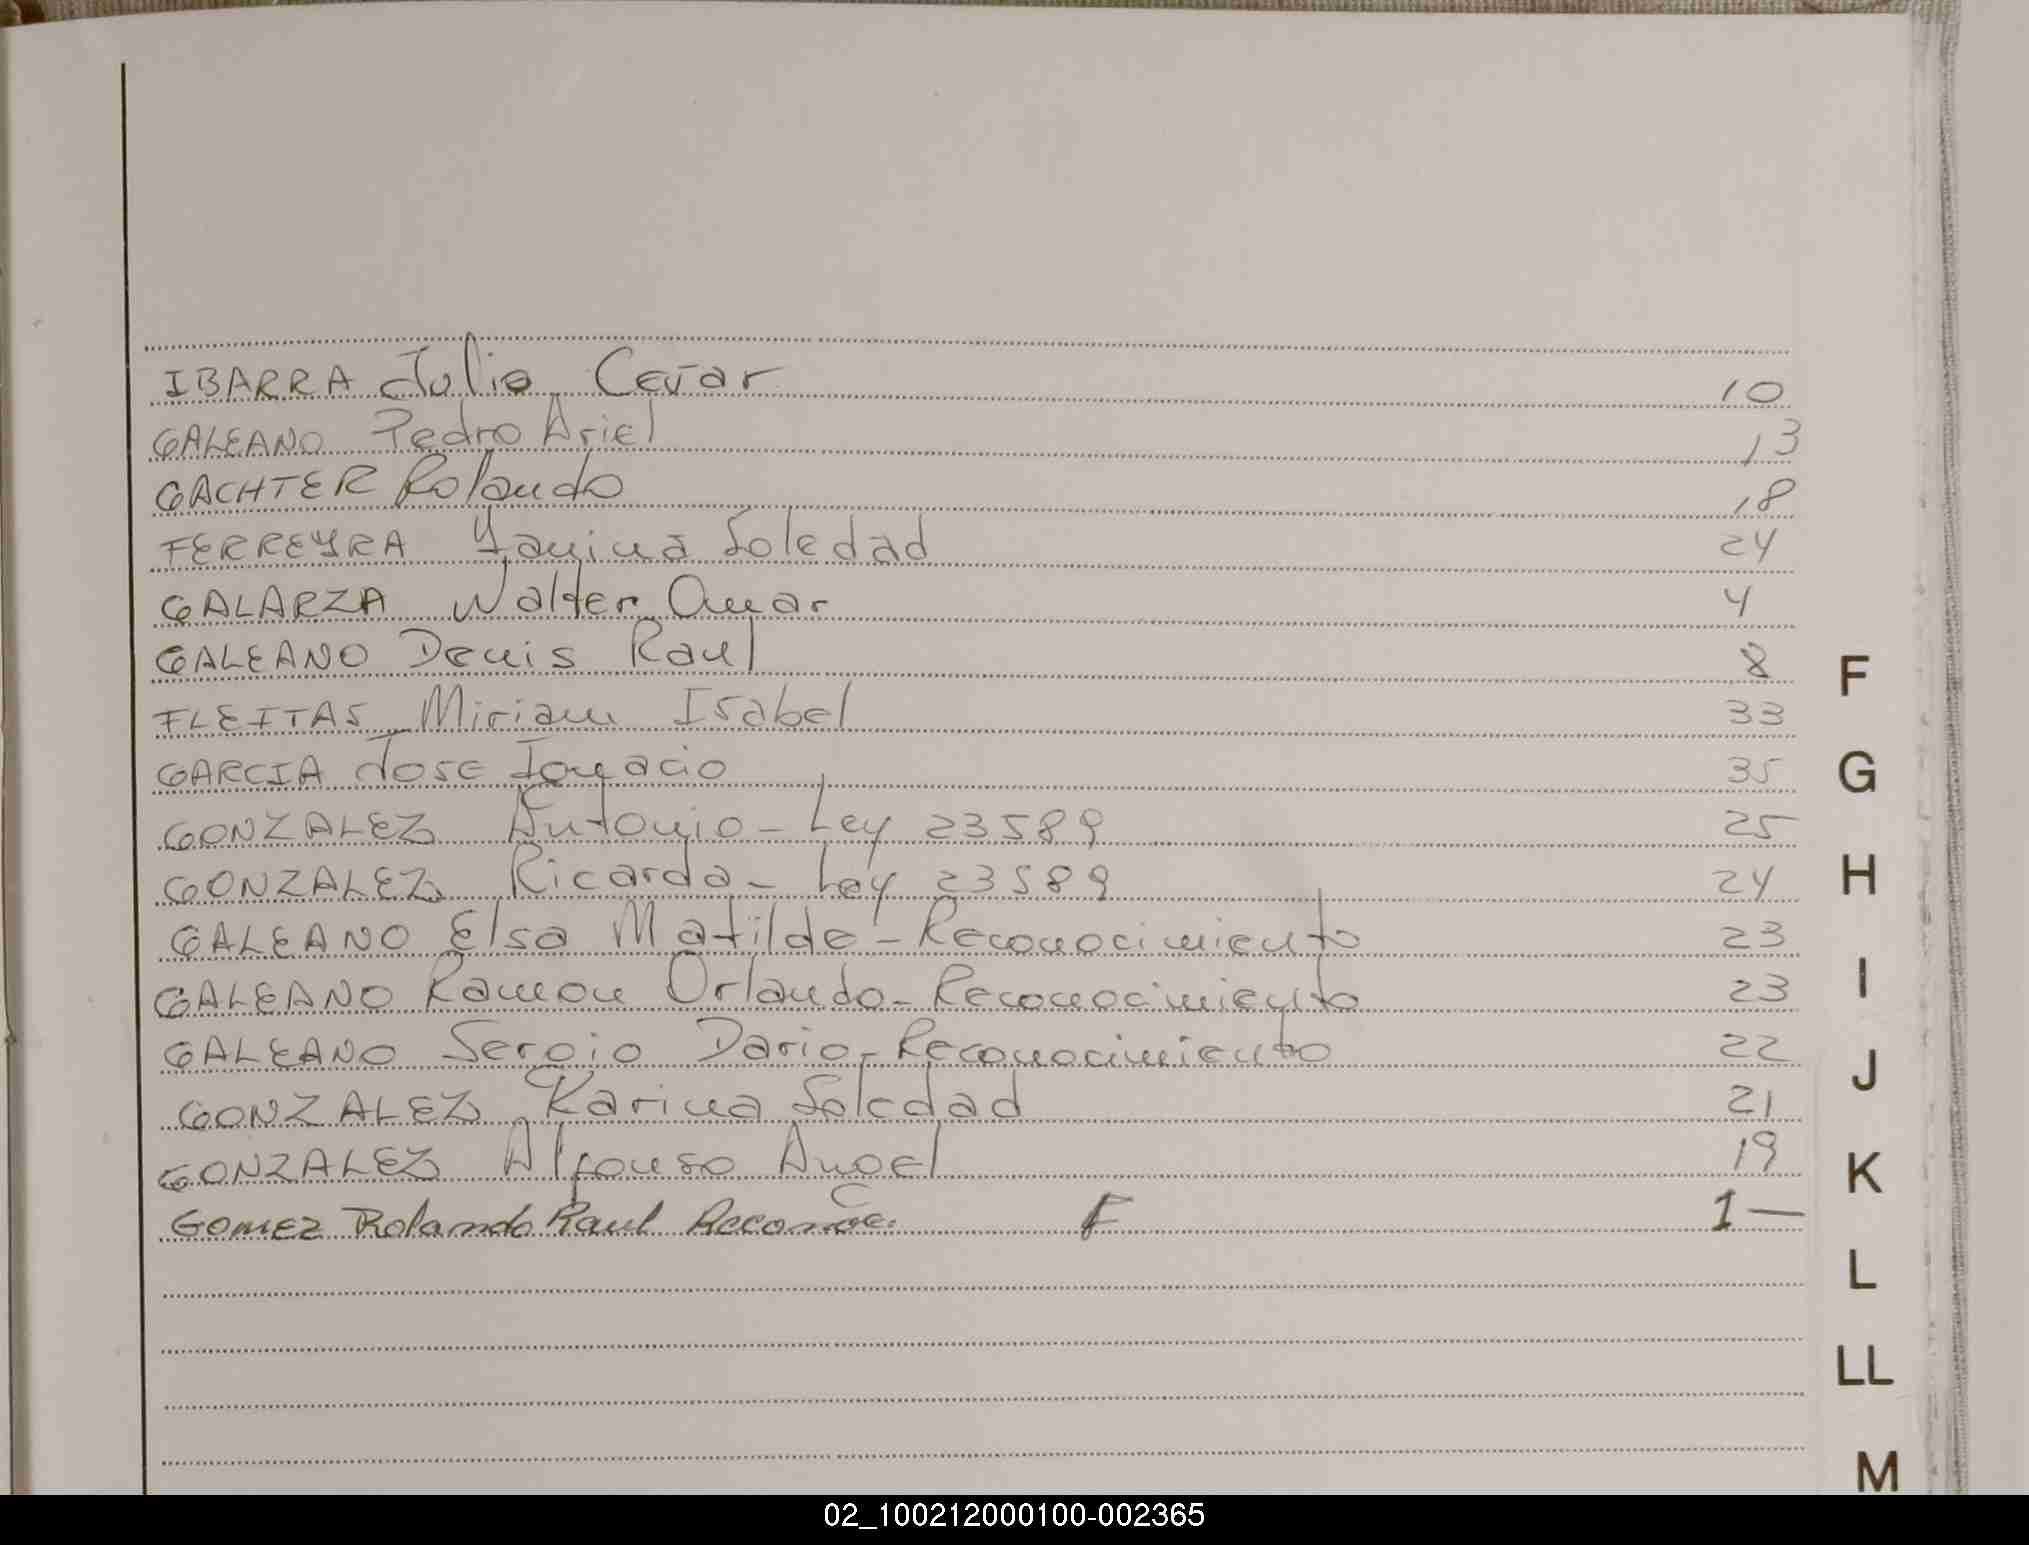 IBARRA Julio Cesar 10
GALEANO Pedro Ariel 13
GACHTER Rolando 18
FERREYRA Yanina Soledad 24
GALARZA Walter Omar 4
GALEANO Denis Raul 8
FLEITAS Miriam Isabel 33
GARCIA Jose Ignacio 35
GONZALEZ Antonio - Ley 23589 25
GONZALEZ Ricarda - Ley 23589 24
GALEANO Elsa Matilde - Reconocimiento 23
GALEANO Ramon Orlando - Reconocimiento 23
GALEANO Sergio Dario - Reconocimiento 22
GONZALEZ Karina Soledad 21
GONZALEZ Alfonso Angel 19
GOMEZ Rolando Raul F 1—
F
G
H
I
J
K
L
LL
M
02_100212000100-002365